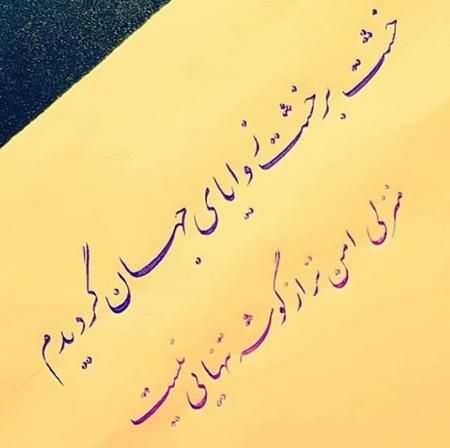 خشت بر خشت زوایای جهان گردیدم
منزلی امن تر از گوشه تنهایی نیست